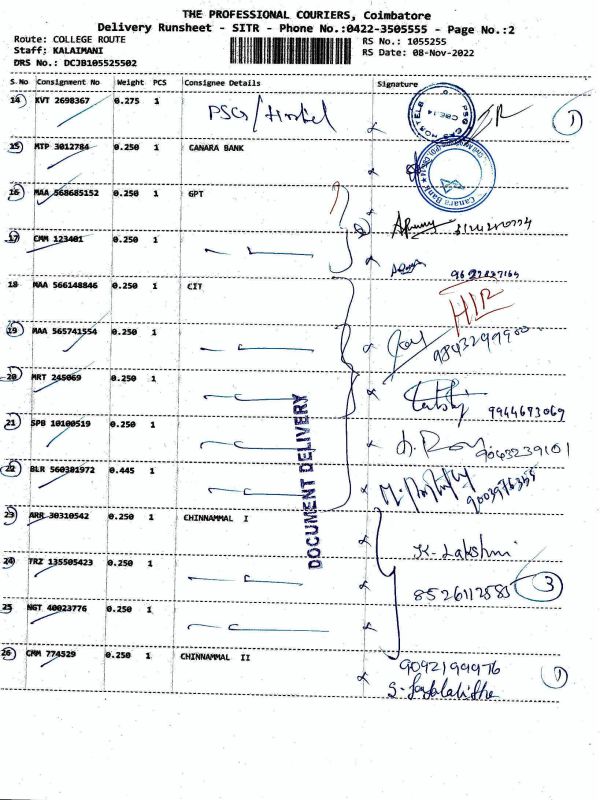 THE PROFESSIONAL COURIERS, Coimbatore
Delivery Runsheet - SITR - Phone No.:0422-3505555 - Page No.:2
Route: COLLEGE ROUTE
RS No.: 1055255
Staff: KALAIMANI
RS Date: 08-Nov-2022
DRS No.: DCJB105525502
S.No Consignment No Weight PCS Consignee Details Signature
14 KVT 2698367 0.275 1 PSG/Hostel
PSG CAS HOSTELS CBE-14
1
15 MTP 3012784 0.250 1 CANARA BANK
Canara Bank
16 MAA 568685152 0.250 1 GPT
17 CMM 123401 0.250 1
18 MAA 566148846 0.250 1 CIT
HIR
19 MAA 565741554 0.250 1
20 MRT 245069 0.250 1 9944673069
21 SPB 10100519 0.250 1 9043239101
22 BLR 560381972 0.445 1
DOCUMENT DELIVERY
23 ARR 30310542 0.250 1 CHINNAMMAL I
K. Lakshmi
24 TRZ 135505423 0.250 1 3
25 NGT 40023776 0.250 1
26 CMM 774529 0.250 1 CHINNAMMAL II 9092199976
1